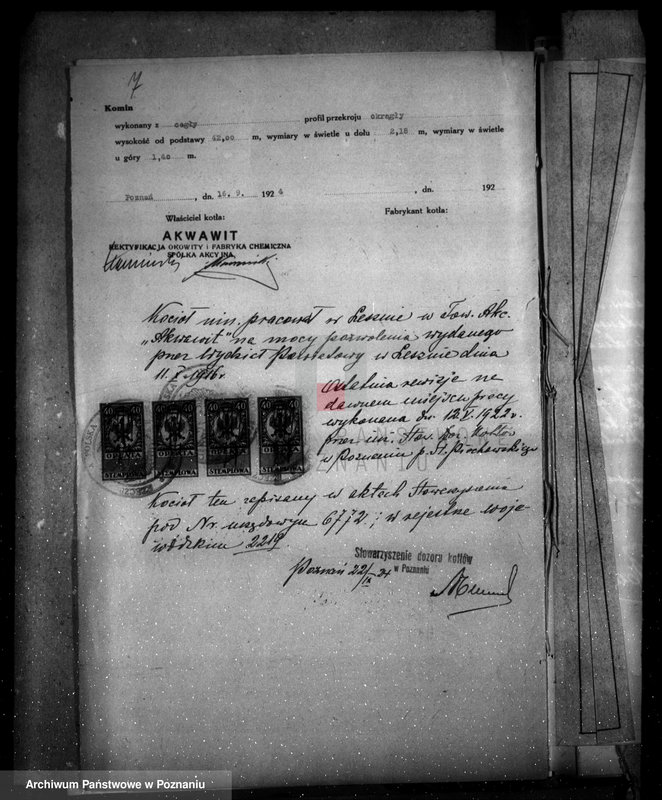 7
Komin
wykonany z cegły profil przekroju okrągły
wysokość od podstawy 42,00 m, wymiary w świetle u dołu 2,18 m, wymiary w świetle
u góry 1,40 m.
Poznań, dn. 16.9. 1924 , dn. 192
Właściciel kotła: Fabrykant kotła:
AKWAWIT
REKTYFIKACJA OKOWITY i FABRYKA CHEMICZNA
SPÓŁKA AKCYJNA
Kocioł min. pracował w Lesznie w Tow. Akc.
„Akwawit" na mocy pozwolenia wydanego
przez Wydział Powiatowy w Lesznie dnia
11.X.1916r.
Ostatnia rewizje na
dawnem miejscu pracy
wykonana d. 12.V.1922r.
przez inż. Stow. Doz. Kotłów
w Poznaniu p. St.
40 40 40 40 40 40 40 40
OPŁATA OPŁATA OPŁATA OPŁATA
STEMPLOWA STEMPLOWA STEMPLOWA STEMPLOWA
Kocioł ten zapisany w aktach Stowarzyszenia
pod Nr. urzędowym 6772; w rejestrze woje-
wódzkim 2219
Stowarzyszenie dozoru kotłów
w Poznaniu
Poznań 22/IX 24
Archiwum Państwowe w Poznaniu